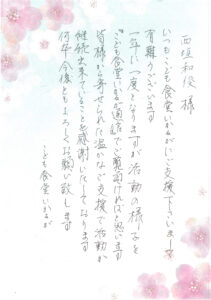 西垣和俊 様
いつもこども食堂いかるがにご支援下さいまして
有難うございます
一年に一度となりますが活動の様子を
"こども食堂いかるが通信"でご覧頂ければと思います
皆様から寄せられた温かなご支援で活動が
継続出来ていることを感謝いたしております
何卒今後ともよろしくお願い致します
こども食堂いかるが